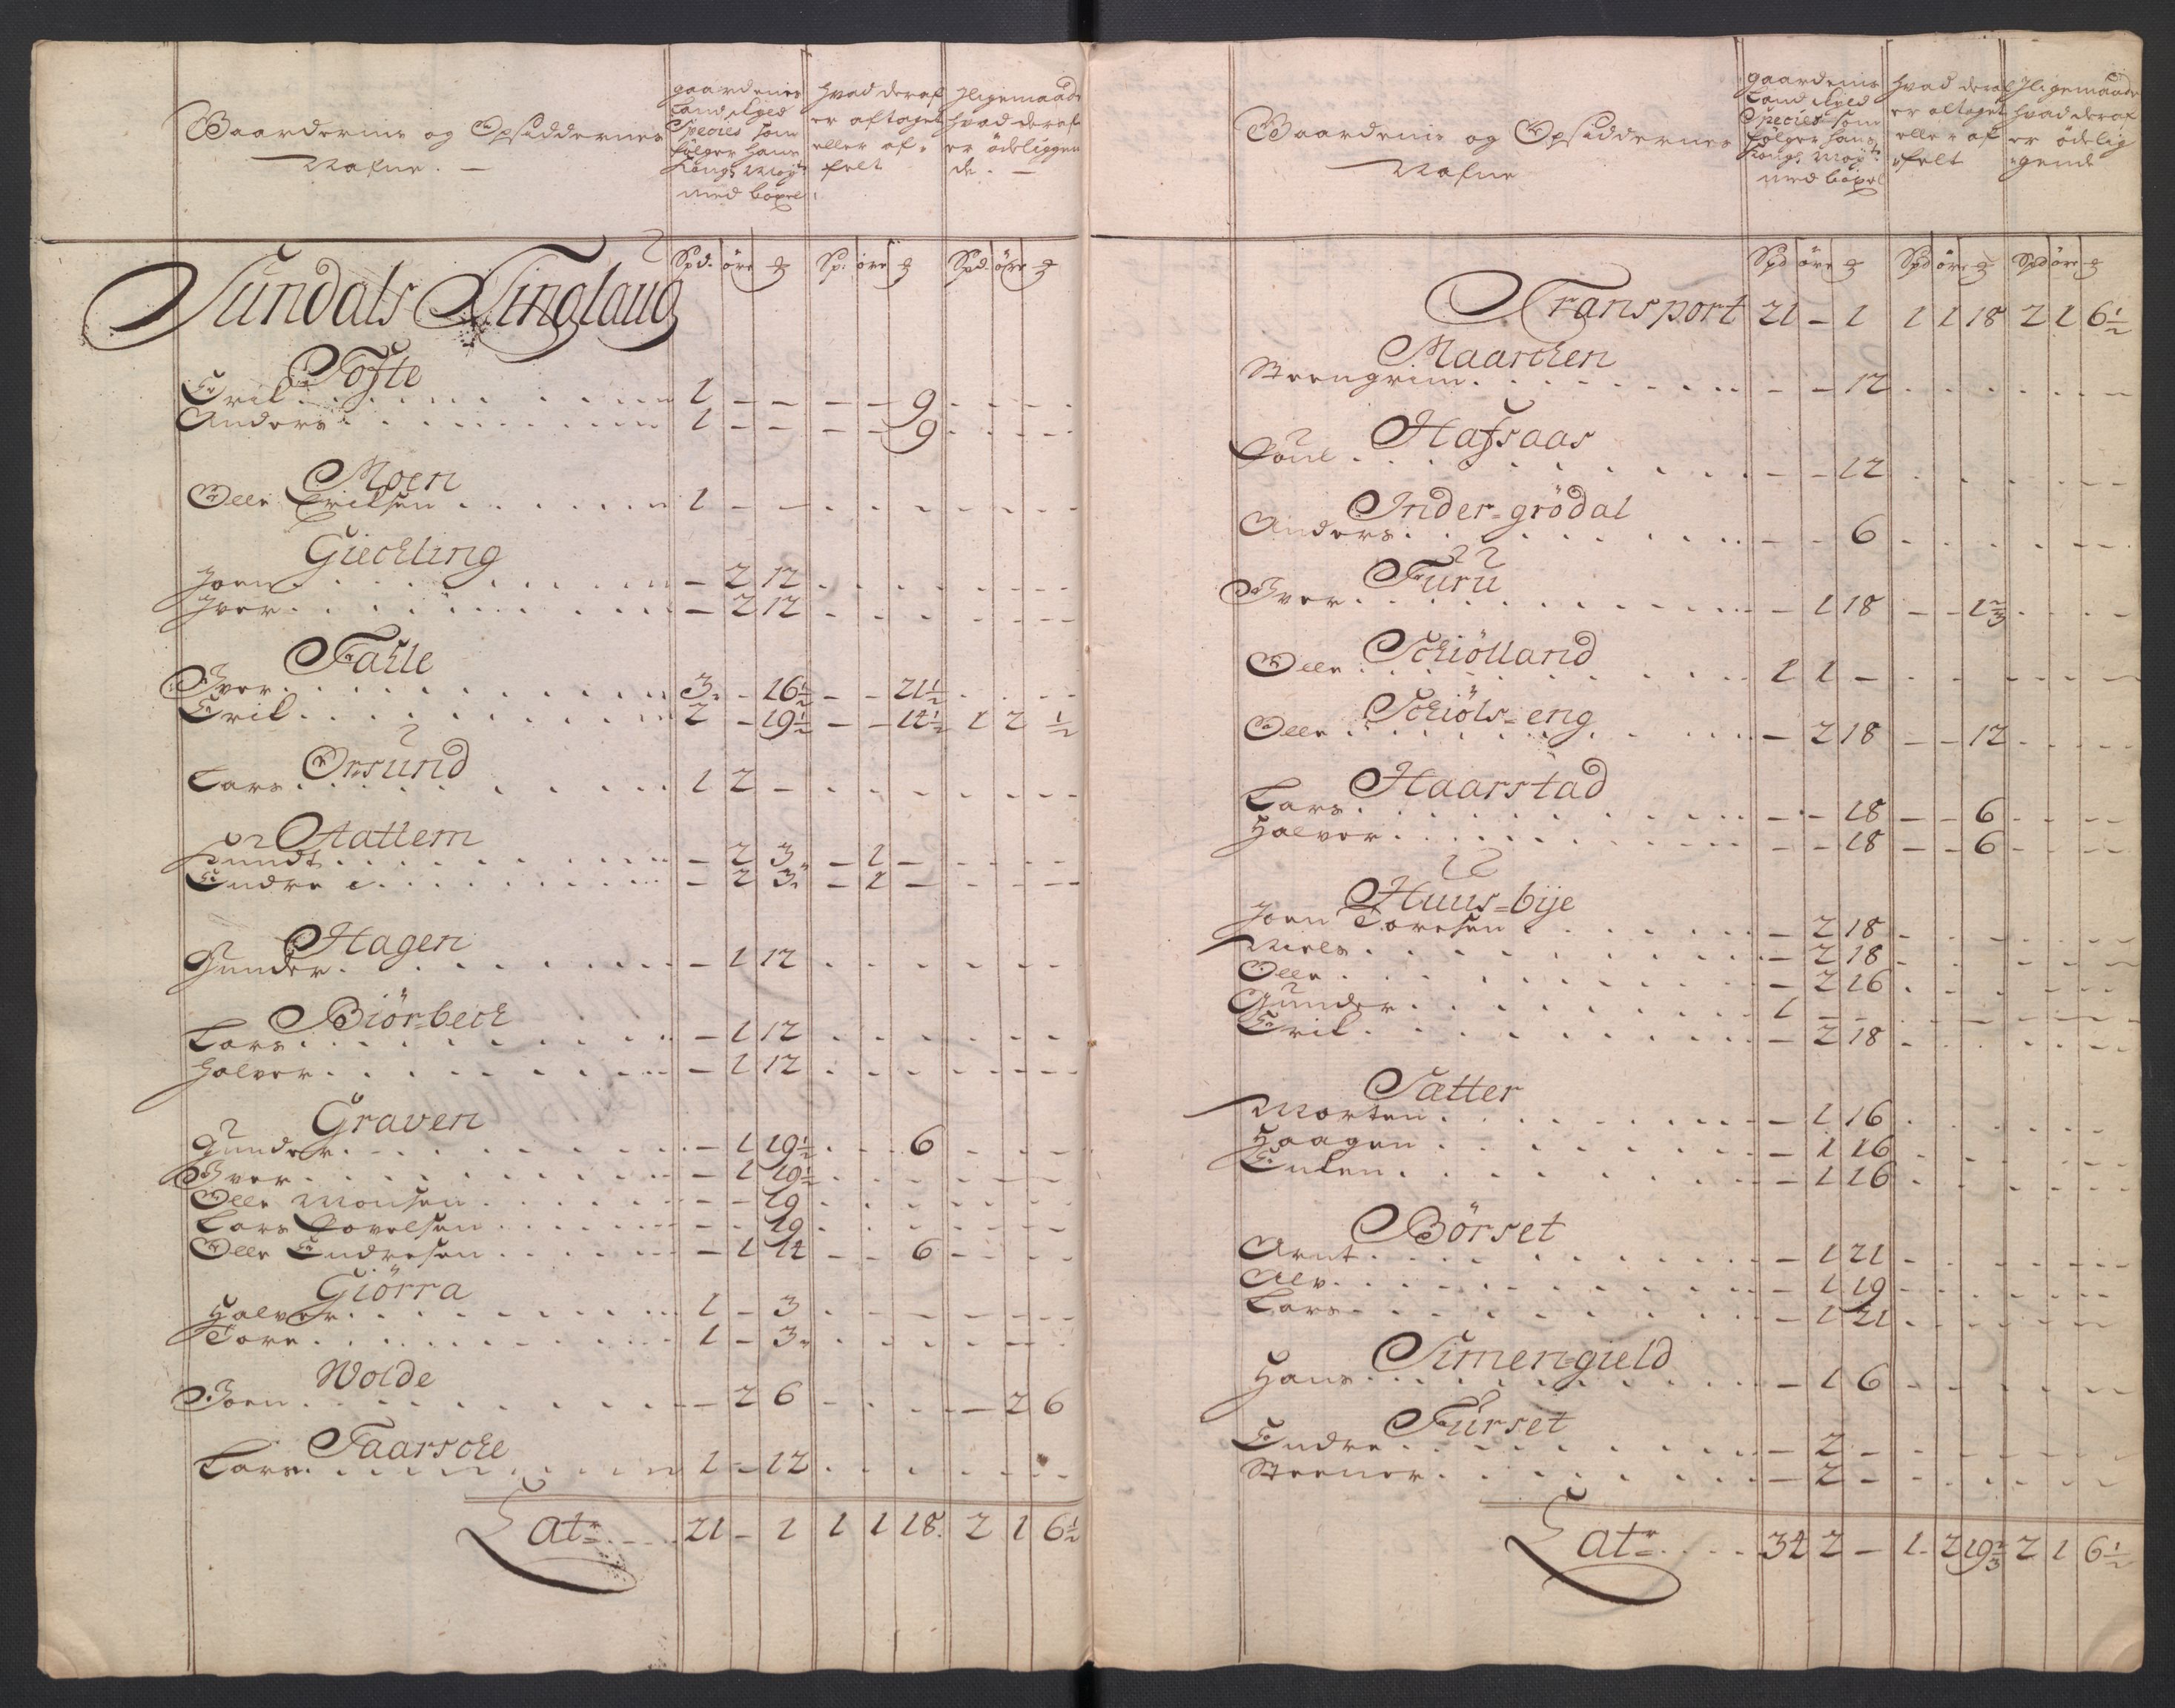 Gaardernis og Opsiddernes
Nafne. —
gaardenes
Land skyld
Species som
følger Hans
Kongl. Mayts
med böxel
hvad deraf
er aftaget
eller af-
felt
Iligemaade
hvad deraf
er ödeliggen
de. —
Spd. öre ₰ Sp: öre ₰ Spd. öre ₰
Sundals Tinglaug
Tofte
Eril 1 — — — — 9
Anders 1 — — — — 9
Moen
Olle Erilsen 1 — —
Gieckling
Joen — 2 12
Iver — 2 12
Falle
Iver 3 — 16½ — — 21½
Eril 2 — 19½ — — 14½ 1 2 ½
Orsund
Lars 1 2 —
Hattem
Knudt — 2 3 — 1 —
Endre — 2 3 — 1 —
Hagen
Gunder — 1 12
Biörbeck
Lars — 1 12
Halvor — 1 12
Graven
Gunder — 1 19½ 6
Iver — 1 19½
Olle Monsen — — 19
Lars Povelsen — — 19
Olle Endresen — 1 14 — — 6
Giörra
Halvor 1 — 3
Tore 1 — 3
Wolde
Joen — 2 6 — 2 6
Faarscke
Lars 1 — 12
Latr 21 — 1 1 1 18. 2 1 6½
Gaardenis og Opsiddernes
Nafne
gaardenis
Land skyld
Species som
følger Hans
Kongl. Mayts
med böxel
hvad deraf
er aftaget
eller af
felt
Iligemaade
hvad deraf
er ödelig
gende
Spd öre ₰ Spd öre ₰ Spd öre ₰
Transport 21 — 1 1 1 18 2 1 6½
Maarcken
Steengrim — — 12
Hafsaas
Poul — — 12
Inder=grödal
Anders — — 6
Furu
Iver — 1 18 — — 1⅔
Schiölland
Olle 1 1 —
Schiöls=eng
Olle — 2 18 — — 12
Haarstad
Lars — — 18 — — 6
Halvor — — 18 — — 6
Huus=bije
Joen Toresen — 2 18
Niels — 2 18
Olle — 2 16
Gunder 1 — —
Eril — 2 18
Sætter
Morten — 1 16
Haagen — 1 16
— 1 16
Börset
Arnt — 1 21
Alv — 1 19
Lars — 1 21
Simengield
Hans — 1 6
Furset
Endre — 2 —
Steener — 2 —
Latr 34 2 — 1. 2 19⅔ 2 1 6½